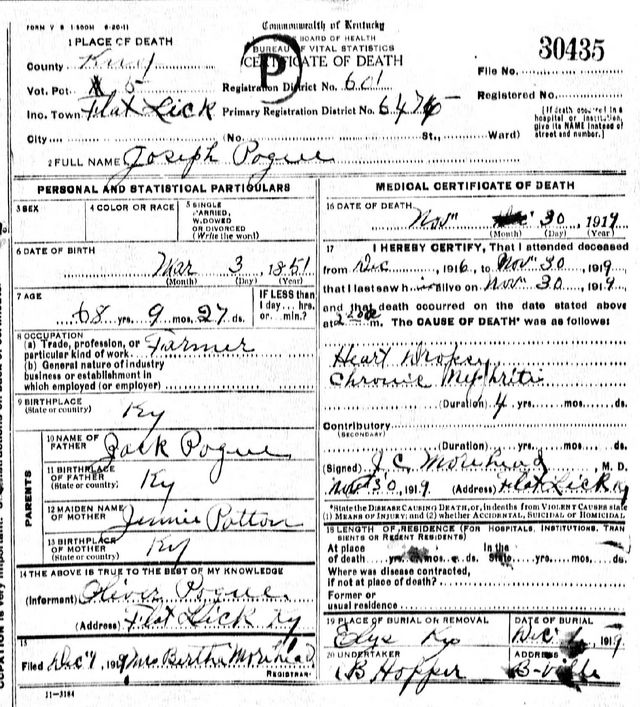 FORM V S 1 500M 6-20-11
Commonwealth of Kentucky
STATE BOARD OF HEALTH
BUREAU OF VITAL STATISTICS
CERTIFICATE OF DEATH
P
30435
1 PLACE OF DEATH
County Knox
Vot. Pct. 5
Registration District No. 601
File No.
Inc. Town Flat Lick
Primary Registration District No. 6476
Registered No.
City (No. St., Ward)
[If death occurred in a hospital or institution, give its NAME instead of street and number.]
2 FULL NAME Joseph Pogue
PERSONAL AND STATISTICAL PARTICULARS
3 SEX
4 COLOR OR RACE
5 SINGLE MARRIED, WIDOWED OR DIVORCED (Write the word)
6 DATE OF BIRTH
Mar 3, 1851
(Month) (Day) (Year)
7 AGE
68 yrs. 9 mos. 27 ds.
IF LESS than 1 day... hrs. or... min.?
8 OCCUPATION
(a) Trade, profession, or particular kind of work Farmer
(b) General nature of industry business or establishment in which employed (or employer)
9 BIRTHPLACE (State or country) Ky
PARENTS
10 NAME OF FATHER Jack Pogue
11 BIRTHPLACE OF FATHER (State or country) Ky
12 MAIDEN NAME OF MOTHER Jennie Patton
13 BIRTHPLACE OF MOTHER (State or country) Ky
14 THE ABOVE IS TRUE TO THE BEST OF MY KNOWLEDGE
(Informant) Oliver Pogue
(Address) Flat Lick Ky
15
Filed Dec 1, 1919 Mrs Bertha Morehead
REGISTRAR
11—3184
MEDICAL CERTIFICATE OF DEATH
16 DATE OF DEATH
Nov 30 1919
(Month) (Day) (Year)
17 I HEREBY CERTIFY, That I attended deceased
from Dec, 1916, to Nov 30, 1919
that I last saw him alive on Nov 30, 1919
and that death occurred on the date stated above
at m. The CAUSE OF DEATH* was as follows:
Heart Dropsy
Chronic Nephritis
(Duration) 4 yrs. mos. ds.
Contributory
(SECONDARY)
(Duration) yrs. mos. ds.
(Signed) J.C. Morehead, M. D.
Nov 30, 1919 (Address) Flat Lick Ky
*State the DISEASE CAUSING DEATH, or, in deaths from VIOLENT CAUSES state (1) MEANS OF INJURY; and (2) whether ACCIDENTAL, SUICIDAL OR HOMICIDAL
18 LENGTH OF RESIDENCE (FOR HOSPITALS, INSTITUTIONS, TRANSIENTS OR RECENT RESIDENTS)
At place of death yrs. mos. ds. In the State yrs. mos. ds.
Where was disease contracted, if not at place of death?
Former or usual residence
19 PLACE OF BURIAL OR REMOVAL
Elys Ky
DATE OF BURIAL
Dec 1, 1919
20 UNDERTAKER
B Hopper
ADDRESS
B-ville